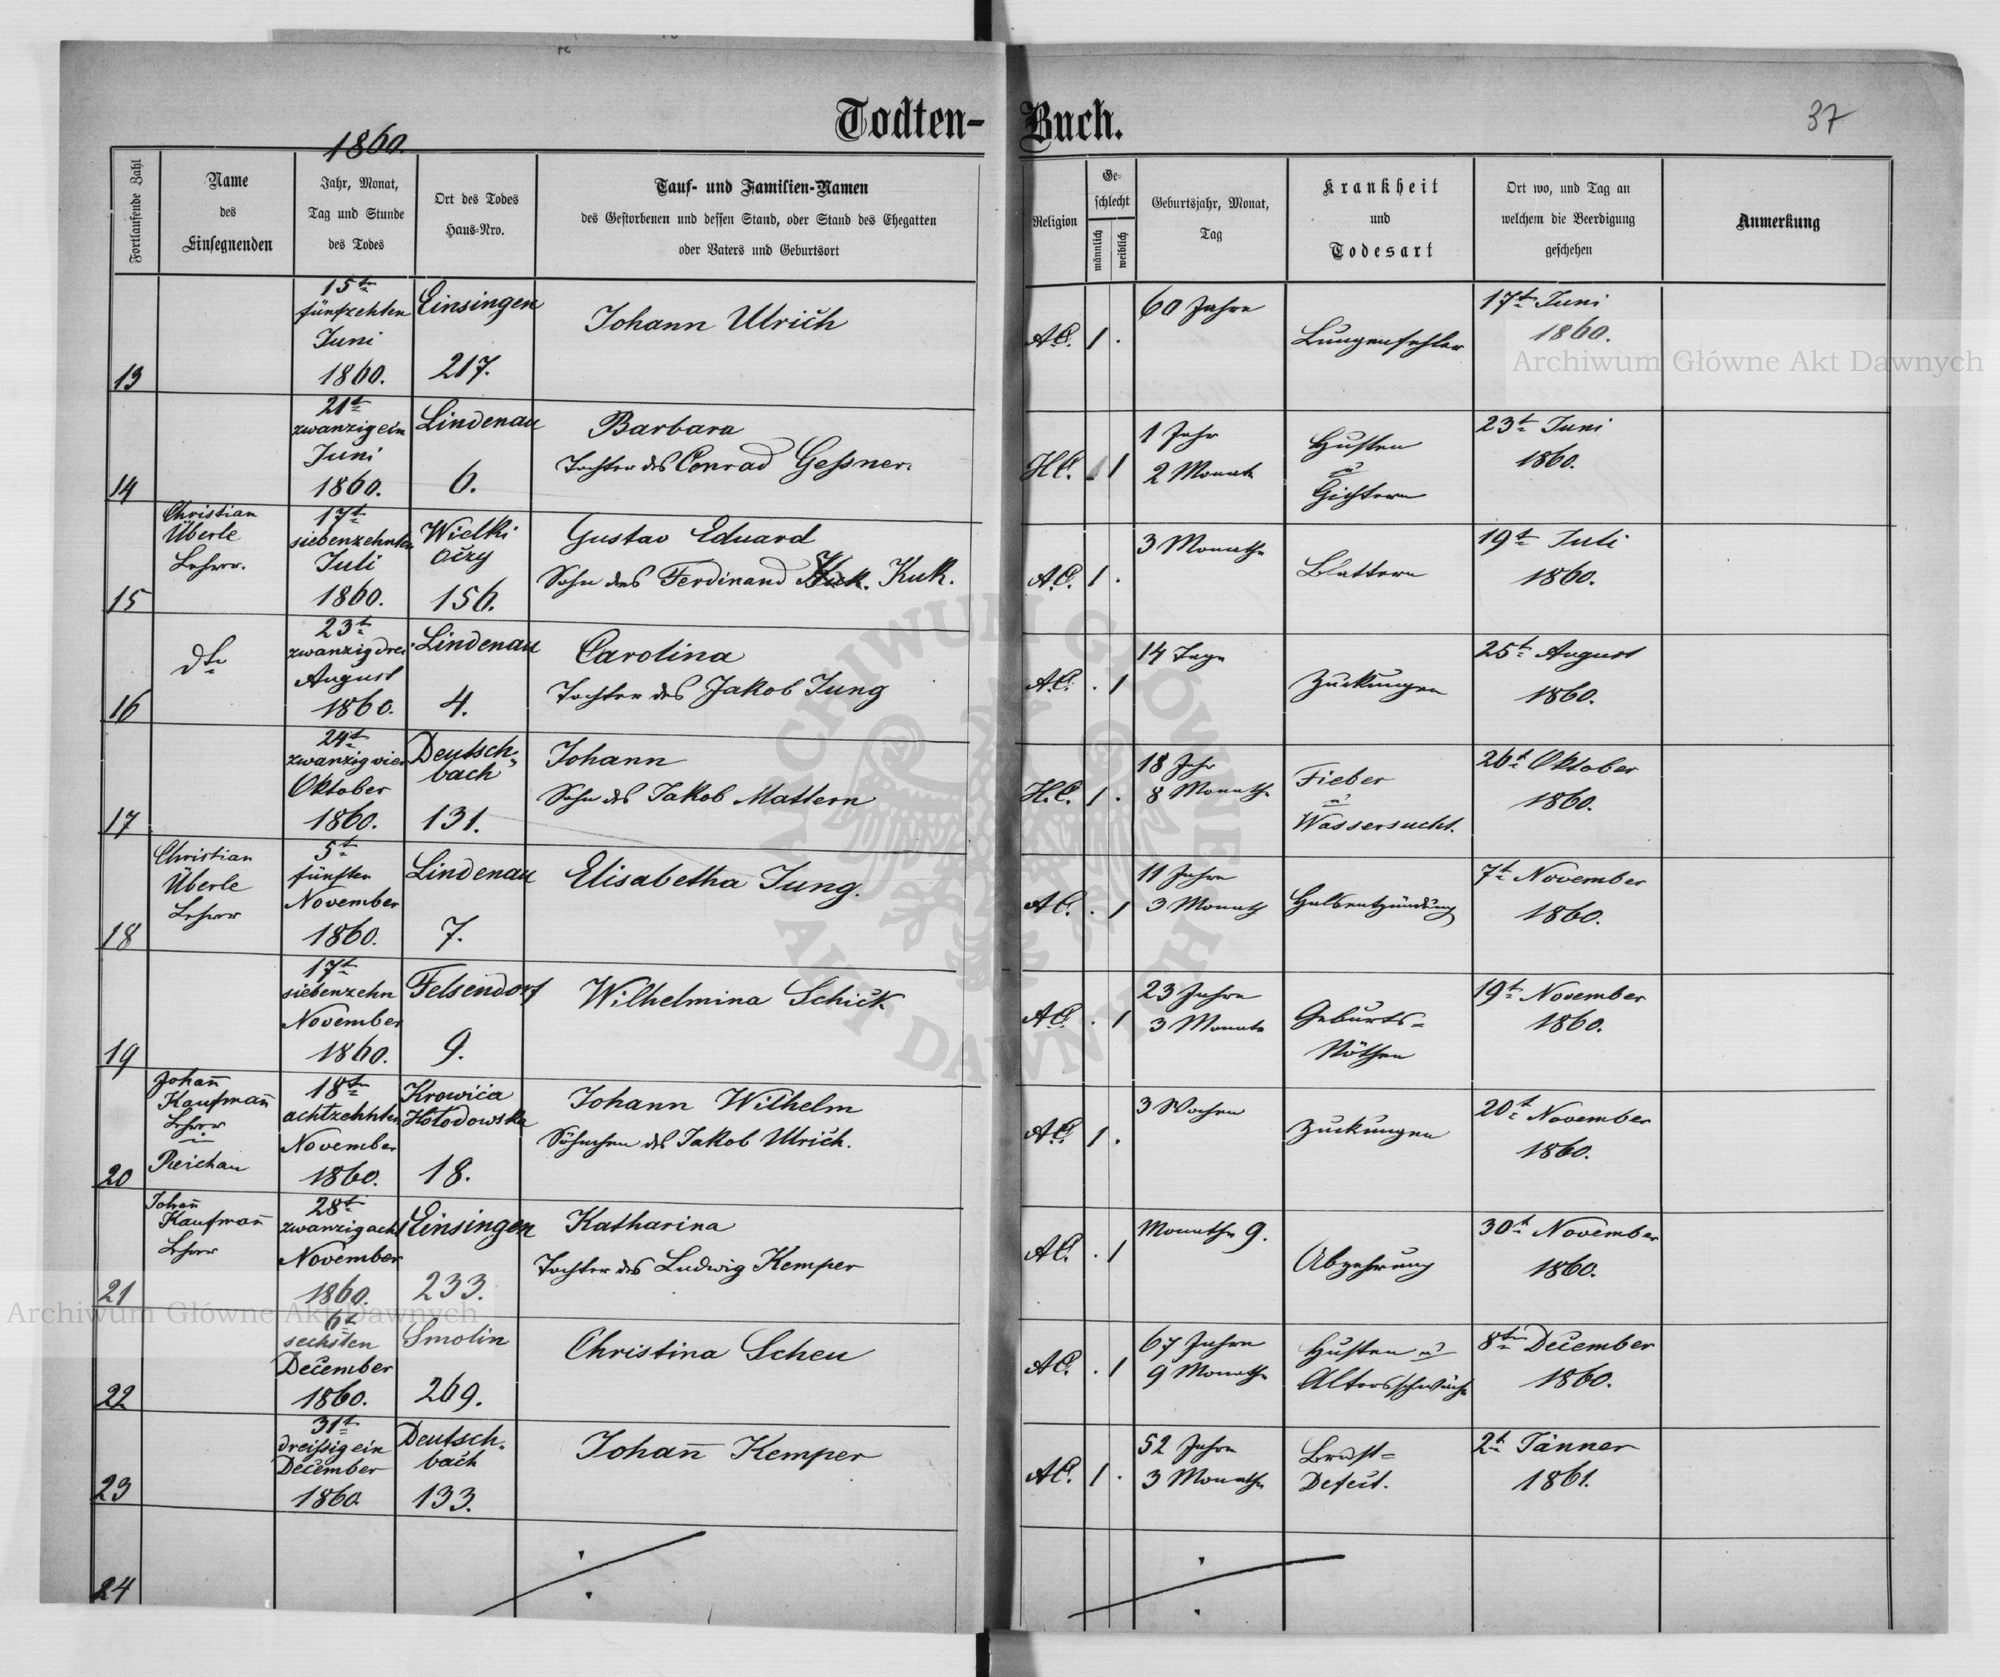 Todten- Buch.
37
1860.
Fortlaufende Zahl
Name
des
Einsegnenden
Jahr, Monat,
Tag und Stunde
des Todes
Ort des Todes
Haus-Nro.
Tauf- und Familien-Namen
des Gestorbenen und dessen Stand, oder Stand des Ehegatten
oder Vaters und Geburtsort
Religion
Ge-
schlecht
männlich
weiblich
Geburtsjahr, Monat,
Tag
Krankheit
und
Todesart
Ort wo, und Tag an
welchem die Beerdigung
geschehen
Anmerkung
13
15tn
fünfzehten
Juni
1860.
Einsingen
217.
Johann Ulrich
A.C.
1 .
60 Jahre
Lungenfehler
17t Juni
1860.
14
21t
zwanzigein
Juni
1860.
Lindenau
6.
Barbara
Tochter des Conrad Geßner.
H.C.
1
1 Jahr
2 Monate
Husten
u
Gichtern
23t Juni
1860.
15
Christian
Überle
Lehrer.
17t
siebenzehnten
Juli
1860.
Wielki
Očzy
156.
Gustav Eduard
Sohn des Ferdinand Kuk.
A.C.
1 .
3 Monathe
Blattern
19t Juli
1860.
16
dto
23t
zwanzigdrei
August
1860.
Lindenau
4.
Carolina
Tochter des Jakob Jung
A.C.
. 1
14 Tage
Zuckungen
25t August
1860.
17
24t
zwanzigvier
Oktober
1860.
Deutsch-
bach
131.
Johann
Sohn des Jakob Mattern
H.C.
1 .
18 Jahr
8 Monathe
Fieber
u
Wassersucht.
26t Oktober
1860.
18
Christian
Überle
Lehrer
5t
fünften
November
1860.
Lindenau
7.
Elisabetha Jung.
A.C.
. 1
11 Jahre
3 Monath
Halsentzündung
7t November
1860.
19
17t
siebenzehn
November
1860.
Felsendorf
9.
Wilhelmina Schick
A.C.
. 1
23 Jahre
3 Monate
Geburts=
Nöthen
19t November
1860.
20
Johan̄
Kaufman̄
Lehrer
i
Reichau
18tn
achtzehnten
November
1860.
Krowica
Hołodowska
18.
Johann Wilhelm
Söhnchen des Jakob Ulrich.
A.C.
1 .
3 Wochen
Zuckungen
20t November
1860.
21
Johan̄
Kaufman̄
Lehrer
28t
zwanzigacht
November
1860.
Einsingen
233.
Katharina
Tochter des Ludwig Kemper
A.C.
. 1
Monathe 9.
Abzehrung
30t November
1860.
22
6t
sechsten
December
1860.
Smolin
269.
Christina Scheu
A.C.
. 1
67 Jahre
9 Monathe
Husten u
Altersschwäche
8tn December
1860.
23
31t
dreißigein
December
1860
Deutsch-
bach
133.
Johan̄ Kemper
A.C.
1 .
52 Jahre
3 Monathe
Brust=
Defect.
2t Jänner
1861.
24
Archiwum Główne Akt Dawnych
Archiwum Główne Akt Dawnych
ARCHIWUM GŁÓWNE
AKT DAWNYCH